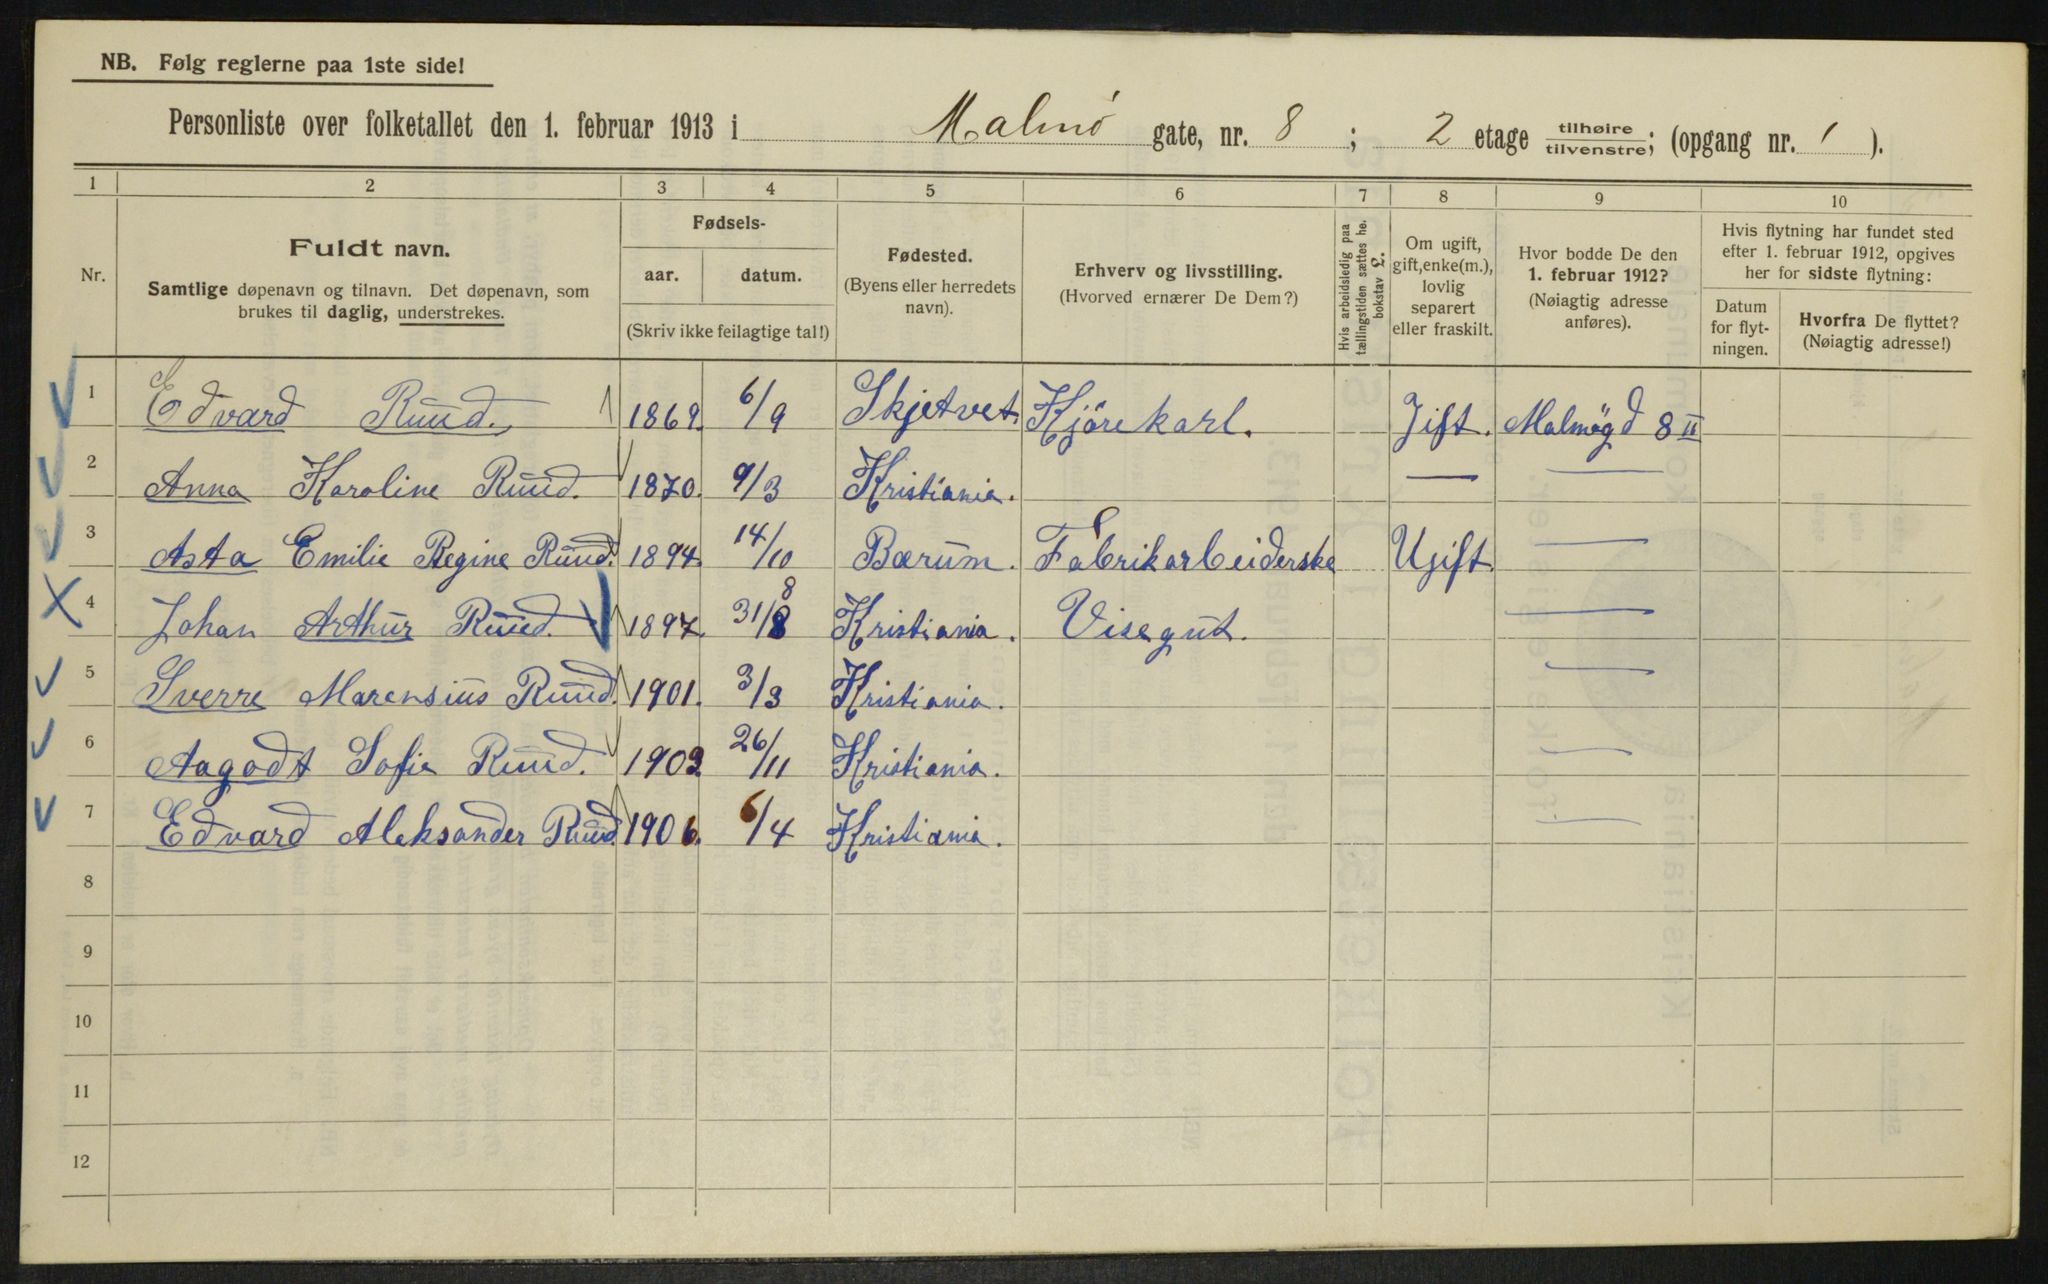 NB. Følg reglerne paa 1ste side!
Personliste over folketallet den 1. februar 1913 i Malmö gate, nr. 8 ; 2 etage tilhøire / tilvenstre; (opgang nr. 1 ).
1 2 3 4 5 6 7 8 9 10
Nr.
Fuldt navn.
Samtlige døpenavn og tilnavn. Det døpenavn, som
brukes til daglig, understrekes.
Fødsels-
aar. datum.
(Skriv ikke feilagtige tal!)
Fødested.
(Byens eller herredets
navn).
Erhverv og livsstilling.
(Hvorved ernærer De Dem?)
Hvis arbeidsledig paa
tællingstiden sættes he.
bokstav L.
Om ugift,
gift, enke(m.),
lovlig
separert
eller fraskilt.
Hvor bodde De den
1. februar 1912?
(Nøiagtig adresse
anføres).
Hvis flytning har fundet sted
efter 1. februar 1912, opgives
her for sidste flytning:
Datum
for flyt-
ningen.
Hvorfra De flyttet?
(Nøiagtig adresse!)
1 Edvard Ruud. 1869. 6/9 Skjetvet. Kjörekarl. Gift. Malmögd 8 II
2 Anna Karoline Ruud. 1870. 9/3 Kristiania. —
3 Asta Emilie Regine Ruud. 1894. 14/10 Bærum. Fabrikarbeiderske Ugift. —
4 Johan Arthur Ruud. 1897. 31/8 8 Kristiania. Visegut. —
5 Sverre Marensius Ruud. 1901. 3/3 Kristiania. —
6 Aagodt Sofie Ruud. 1902 26/11 Kristiania. —
7 Edvard Aleksander Ruud. 1906. 6/4 Kristiania. —
8
9
10
11
12